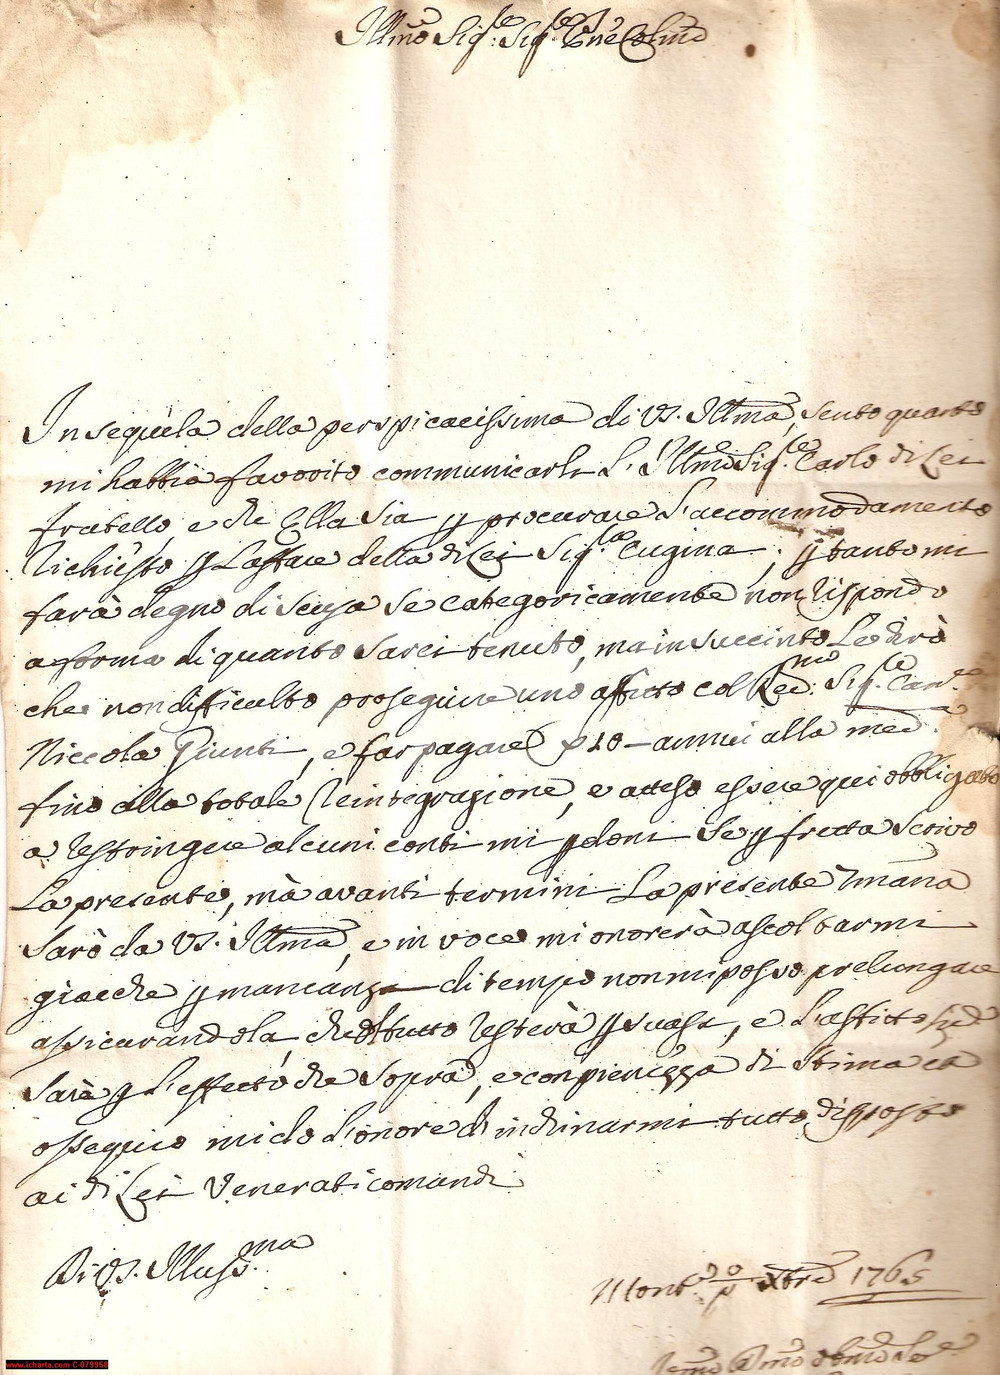 Illmo Sig.re Sig.re e Pne Colmo
In sequela della perspicacissima di VS. Illma, sento quanto
mi habbia favorito communicarle L'Illmo Sig.re Carlo di Lei
fratello, e che Ella sia p procurare l'accommodamento
richiesto p L'affare della di Lei Sig.ra Cugina, p tanto mi
farà degno di scusa se categoricamente non rispondo
a forma di quanto sarei tenuto, ma in succinto Le dirò
che non difficulto proseguire uno affitto col Sig.re Can.co
Niccola Giunti, e far pagare 10 annui alla med.
fino alla totale reintegrazione, e atteso essere qui obbligato
a restringere alcuni conti mi pdoni se p fretta scrivo
La presente, mà avanti termini La presente
sarò da VS. Illma, e in voce mi onorerà ascoltarmi
giacche p mancanza di tempo non mi posso prelungare
assicurandola, che tutto resterà, e l'affitto
sarà p l'effetto che sopra, e con pienezza di stima et
ossequio mi do l'onore d'inchinarmi tutto disposto
ai di Lei venerati comandi
Di VS. Illuss.ma
p Xbre 1765
www.icharta.com C-079958